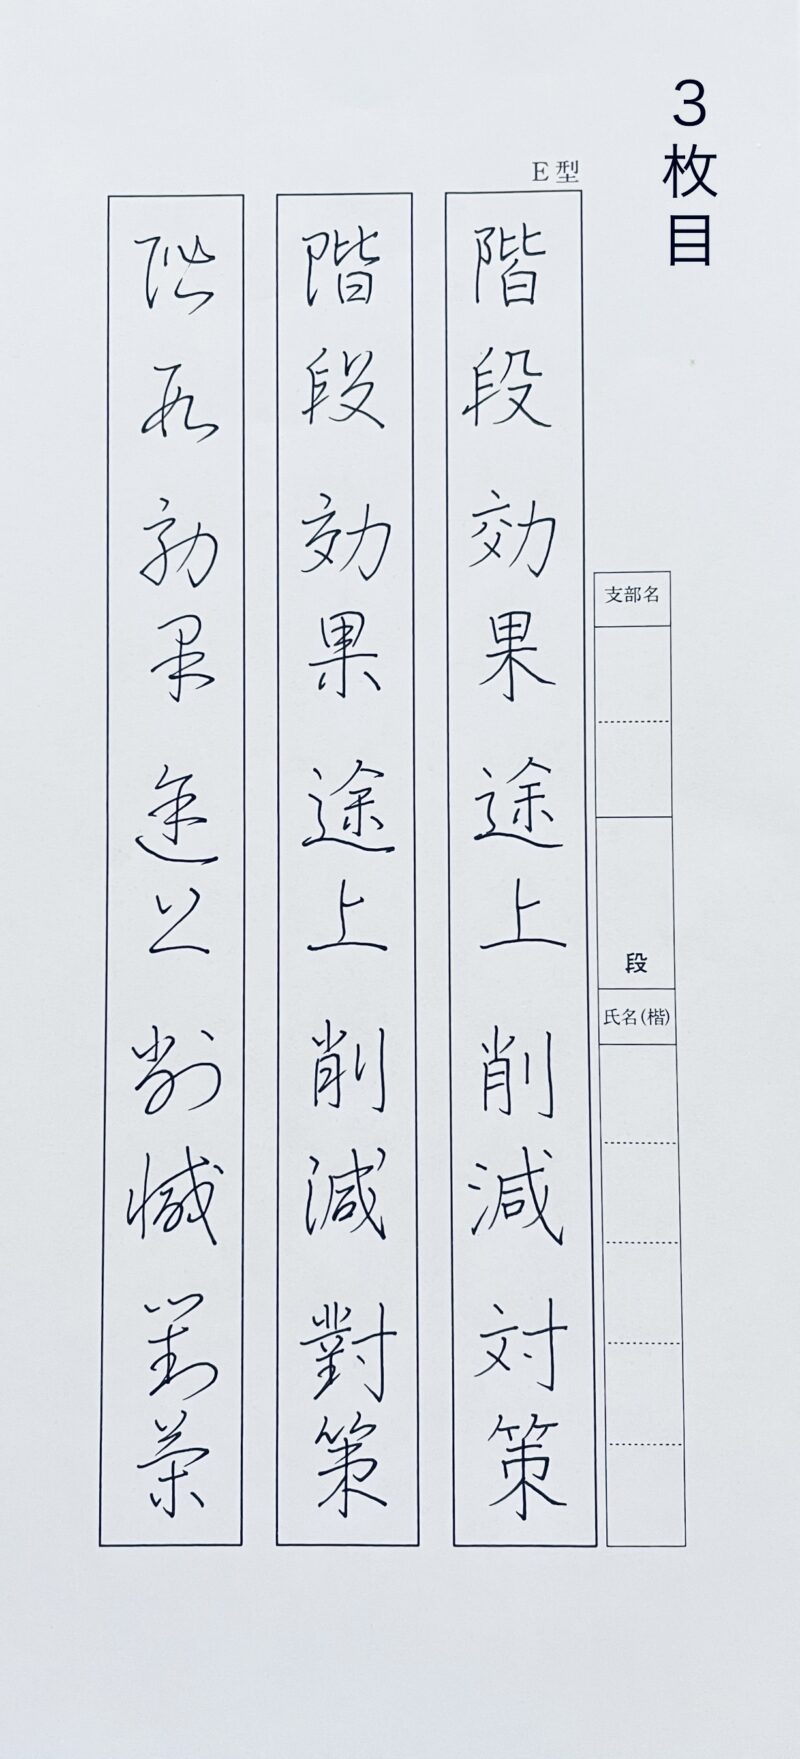 3枚目
E型
支部名
段
氏名(楷)
階段効果途上削減対策
階段効果途上削減對策
階段効果途上削減對策